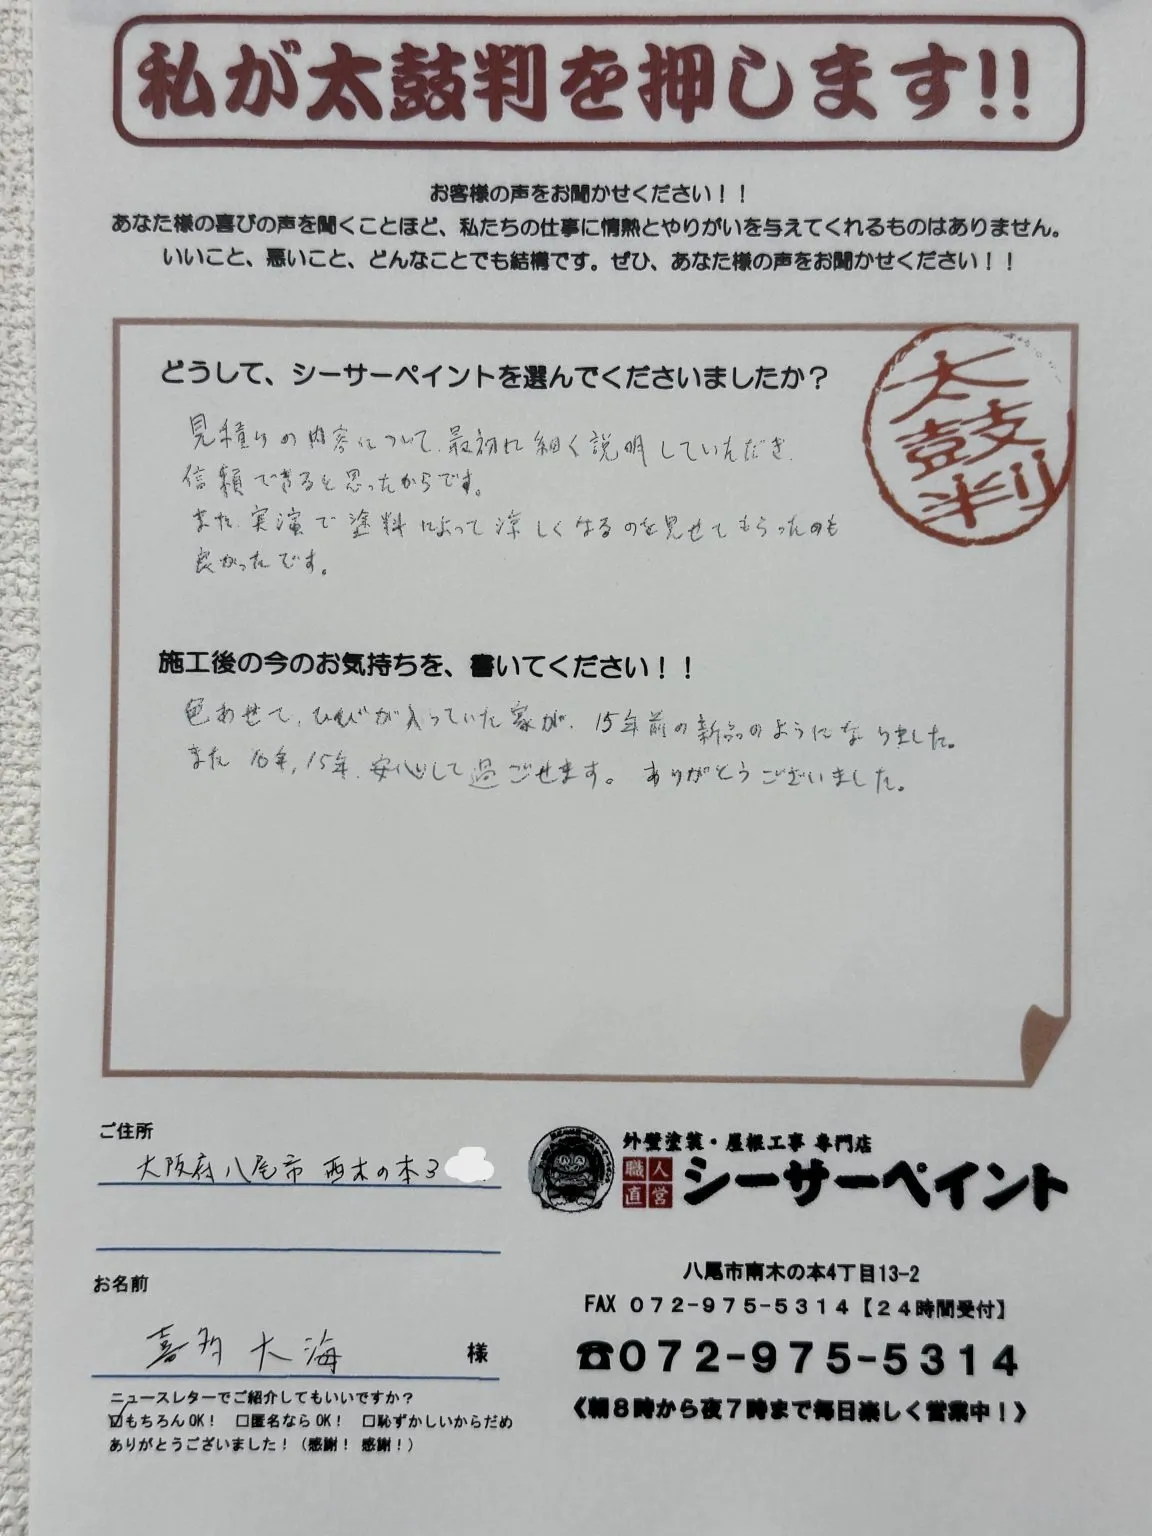 私が太鼓判を押します!!
お客様の声をお聞かせください！！
あなた様の喜びの声を聞くことほど、私たちの仕事に情熱とやりがいを与えてくれるものはありません。
いいこと、悪いこと、どんなことでも結構です。ぜひ、あなた様の声をお聞かせください！！
太鼓判
どうして、シーサーペイントを選んでくださいましたか？
見積りの内容について、最初に細く説明していただき、
信頼できると思ったからです。
また、実演で塗料によって涼しくなるのを見せてもらったのも
良かったです。
施工後の今のお気持ちを、書いてください！！
色あせて、ひびが入っていた家が、15年前の新品のようになりました。
また10年、15年、安心して過ごせます。ありがとうございました。
ご住所
大阪府八尾市西木の本3
お名前
喜多大海 様
ニュースレターでご紹介してもいいですか？
☑もちろんOK！ □匿名ならOK！ □恥ずかしいからだめ
ありがとうございました！（感謝！感謝！）
外壁塗装・屋根工事 専門店
職人直営 シーサーペイント
八尾市南木の本4丁目13-2
FAX 072-975-5314【24時間受付】
☎072-975-5314
《朝8時から夜7時まで毎日楽しく営業中！》